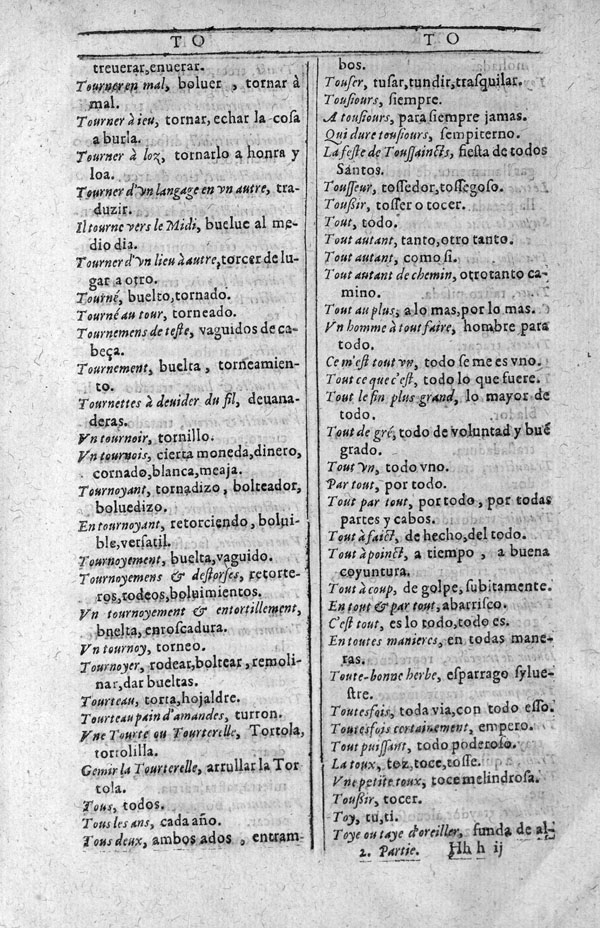 TO
TO
treuerar,enuerar.
Tourner en mal, boluer , tornar à
mal.
Tourner à ieu, tornar, echar la cosa
a burla.
Tourner à loz, tornarlo a honra y
loa.
Tourner d'vn langage en vn autre, tra-
duzir.
Il tourne vers le Midi, buelue al me-
dio dia.
Tourner d'vn lieu à autre, torcer de lu-
gar a otro.
Tourné, buelto,tornado.
Tourné au tour, torneado.
Tournemens de teste, vaguidos de ca-
beça.
Tournement, buelta , torneamien-
to.
Tournettes à deuider du fil, deuana-
deras.
Vn tournoir, tornillo.
Vn tournois, cierta moneda,dinero,
cornado,blanca,meaja.
Tournoyant, tornadizo, bolteador,
boluedizo.
En tournoyant, retorciendo, bolui-
ble,versatil.
Tournoyement, buelta,vaguido.
Tournoyemens & destorses, retorte-
ros,rodeos,boluimientos.
Vn tournoyement & entortillement,
buelta, enroscadura.
Vn tournoy, torneo.
Tournoyer, rodear,boltear, remoli-
nar,dar bueltas.
Tourteau, torta,hojaldre.
Tourteau pain d'amandes, turron.
Vne Tourte ou Tourterelle, Tortola,
tortolilla.
Gemir la Tourterelle, arrullar la Tor
tola.
Tous, todos.
Tous les ans, cada año.
Tous deux, ambos ados , entram-
bos.
Touser, tusar,tundir,trasquilar.
Tousiours, siempre.
A tousiours, para siempre jamas.
Qui dure tousiours, sempiterno.
La feste de Toussaincts, fiesta de todos
Santos.
Tousseur, tossedor,tossegoso.
Toussir, tosser o tocer.
Tout, todo.
Tout autant, tanto,otro tanto.
Tout autant, como si.
Tout autant de chemin, otro tanto ca-
mino.
Tout au plus, a lo mas,por lo mas.
Vn homme à tout faire, hombre para
todo.
Ce m'est tout vn, todo se me es vno.
Tout ce que c'est, todo lo que fuere.
Tout le fin plus grand, lo mayor de
todo.
Tout de gré, todo de voluntad y bué
grado.
Tout vn, todo vno.
Par tout, por todo.
Tout par tout, por todo , por todas
partes y cabos.
Tout à faict, de hecho,del todo.
Tout à poinct, a tiempo , a buena
coyuntura.
Tout à coup, de golpe,subitamente.
En tout & par tout, abarrisco.
C'est tout, es lo todo,todo es.
En toutes manieres, en todas mane-
ras.
Toute-bonne herbe, esparrago sylue-
stre.
Toutesfois, toda via,con todo esso.
Toutesfois certainement, empero.
Tout puissant, todo poderoso.
La toux, toz,toce,tosse.
Vne petite toux, toce melindrosa.
Toussir, tocer.
Toy, tu,ti.
Toye ou taye d'oreiller, funda de al-
2. Partie. Hh h ij